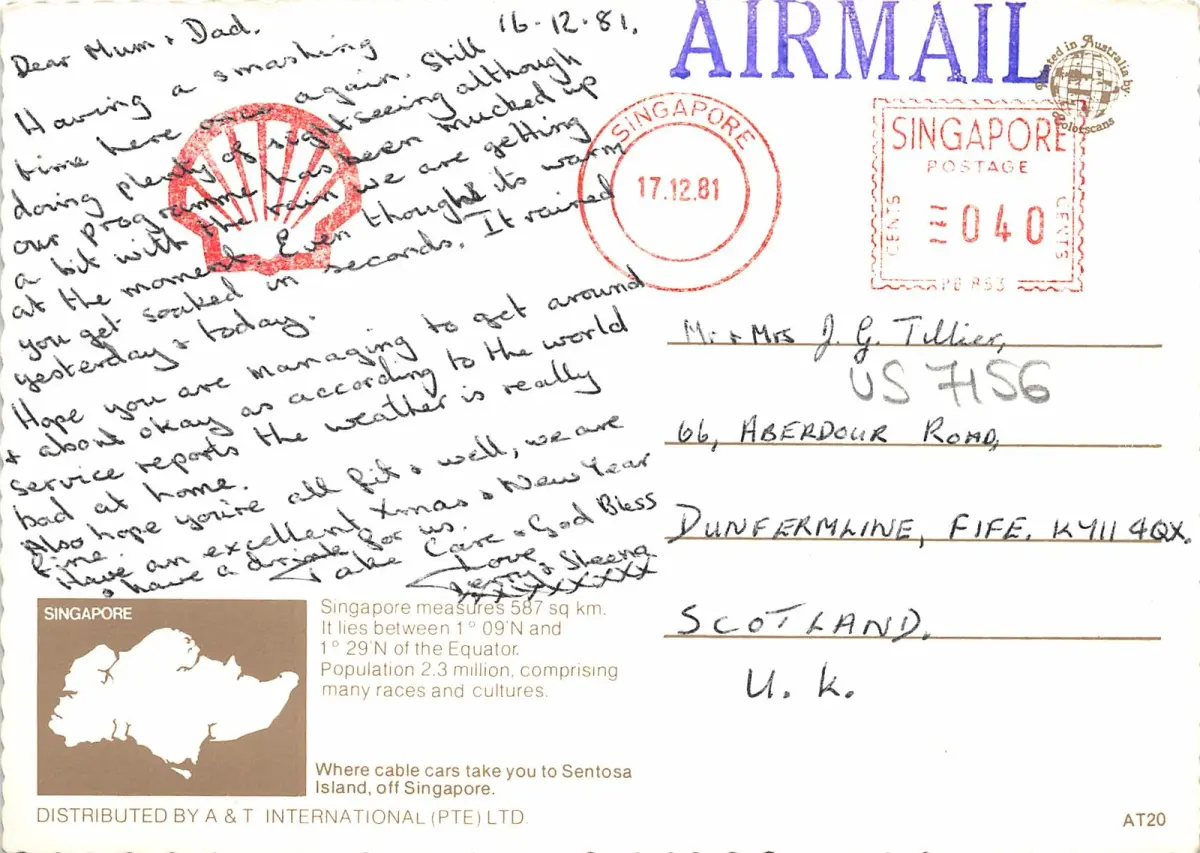 16-12-81.
Dear Mum & Dad.
Having a smashing
time here once again. Still
doing plenty of sightseeing although
our programme has been mucked up
a bit with the rain we are getting
at the moment. Even though its warm
you get soaked in seconds. It rained
yesterday & today.
Hope you are managing to get around
& about okay as according to the world
service reports the weather is really
bad at home.
Also hope you're all fit & well, we are
fine.
Have an excellent Xmas & New Year
& have a drink for us.
Take Care & God Bless
Love
Terry & Sheena
xxxxxxxxx
AIRMAIL
Printed in Australia by:
Colorscans
SINGAPORE
17.12.81
SINGAPORE
POSTAGE
CENTS
040
CENTS
PB 853
Mr & Mrs J. G. Tillier,
US 7156
66, ABERDOUR ROAD,
DUNFERMLINE, FIFE. KY11 4QX.
SCOTLAND.
U. K.
SINGAPORE
Singapore measures 587 sq km.
It lies between 1° 09'N and
1° 29'N of the Equator.
Population 2.3 million, comprising
many races and cultures.
Where cable cars take you to Sentosa
Island, off Singapore.
DISTRIBUTED BY A & T INTERNATIONAL (PTE) LTD.
AT20